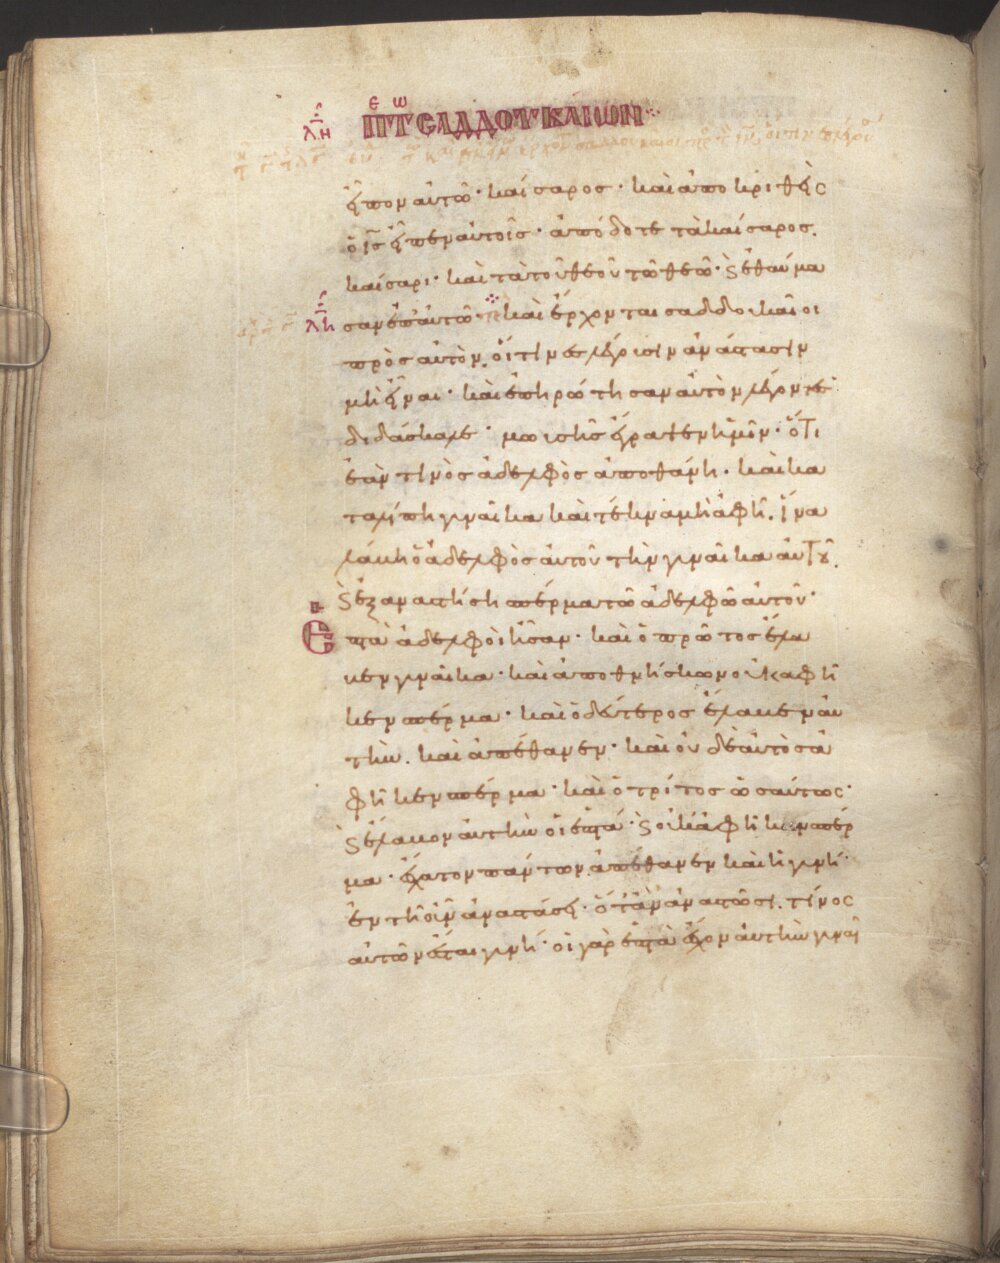 λη ΠΕΡΙ ΤΩΝ ΣΑΔΔΟΥΚΑΙΩΝ
εἶπον αὐτῶ· καίσαρος· καὶ ἀποκριθεὶς
ὁ ις εἶπεν αὐτοῖς· ἀπόδοτε τὰ καίσαρος
καίσαρι· καὶ τὰ τοῦ θεοῦ τῶ θεῶ· ϗ ἐθαύμα
λη σαν ἐπ αὐτῶ· καὶ ἔρχονται σαδδουκαῖοι
πρὸς αὐτὸν. οἵτινες λέγουσιν ἀνάστασιν
μὴ εἶναι· καὶ ἐπηρώτησαν αὐτὸν λέγοντες
διδάσκαλε· μωϋσῆς ἔγραψεν ἡμῖν· ὅτι
ἐάν τινος ἀδελφὸς ἀποθάνη· καὶ κα
ταλίπη γυναῖκα καὶ τέκνα μὴ ἀφῆ. ἵνα
λάβη ὁ ἀδελφὸς αὐτοῦ τὴν γυναῖκα αὐτοῦ.
ϗ ἐξαναστήση σπέρμα τῶ ἀδελφῶ αὐτοῦ·
Ἑπτὰ ἀδελφοὶ ἦσαν· καὶ ὁ πρῶτος ἔλα
βεν γυναῖκα· καὶ ἀποθνήσκων οὐκ ἀφῆ
κεν σπέρμα· καὶ ὁ δεύτερος ἔλαβεν αὐ
τὴν. καὶ ἀπέθανεν· καὶ οὐδὲ αὐτὸς ἀ
φῆκεν σπέρμα· καὶ ὁ τρίτος ὡσαύτως·
ϗ ἔλαβον αὐτὴν οἱ ἑπτά· ϗ οὐκ ἀφῆκαν σπέρ
μα· ἔσχατον πάντων ἀπέθανεν καὶ ἡ γυνή·
ἐν τῆ οὖν ἀναστάσει· ὅταν ἀναστῶσι. τίνος
αὐτῶν ἔσται γυνή· οἱ γὰρ ἑπτὰ ἔσχον αὐτὴν γυναῖ